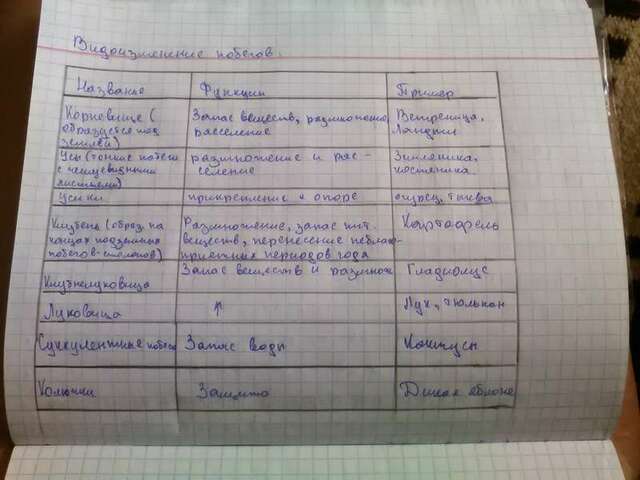 Видоизменение побегов.
Название Функции Пример
Корневище ( Запас веществ, размножение, Ветреница,
образуется под расселение Ландыш
землёй)
Усы (тонкие побеги размножение и рас- Земляника,
с чешуевидными селение костяника.
листьями)
Усики прикрепление к опоре огурец, тыква
Клубень (образ. на Размножение, запас пит. Картофель
концах подземных веществ, перенесение неблаго-
побегов-столонов) приятных периодов года
Клубнелуковица Запас веществ и размнож Гладиолус
Луковица ↑ Лук, тюльпан
Суккулентные побеги Запас воды Кактусы
Колючки Защита Дикая яблоня